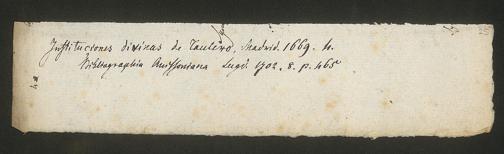 Instituciones divinas de Taulero, Madrid. 1669. 4.
Bibliographia Anissoniana Lugd. 1702. 8. p. 465